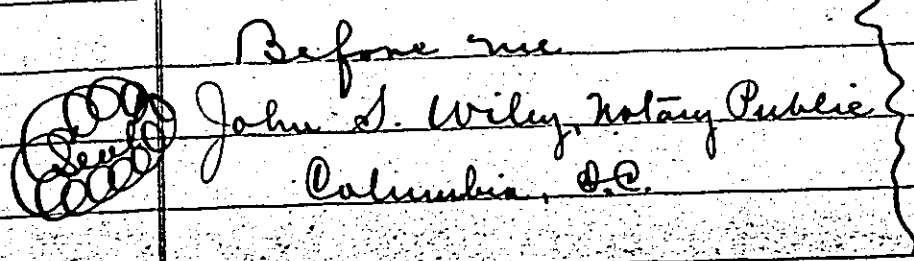 Before me
John S. Wiley, Notary Public
(Seal)
Columbia, S.C.